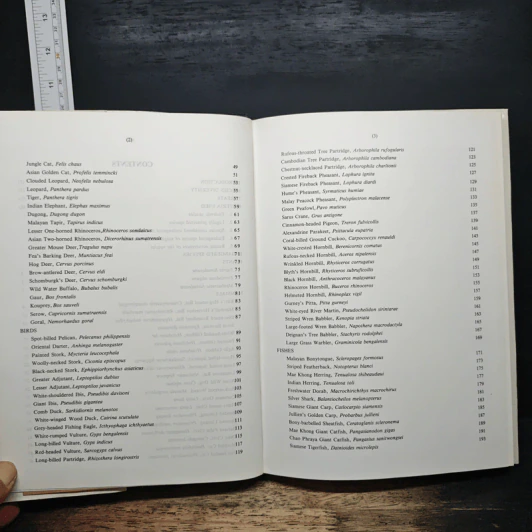 (2)
Jungle Cat, Felis chaus 49
Asian Golden Cat, Profelis temmincki 51
Clouded Leopard, Neofelis nebulosa 53
Leopard, Panthera pardus 55
Tiger, Panthera tigris 57
Indian Elephant, Elephas maximus 59
Dugong, Dugong dugon 61
Malayan Tapir, Tapirus indicus 63
Lesser One-horned Rhinoceros, Rhinoceros sondaicus 65
Asian Two-horned Rhinoceros, Dicerorhinus sumatrensis 67
Greater Mouse Deer, Tragulus napu 69
Fea's Barking Deer, Muntiacus feai 71
Hog Deer, Cervus porcinus 73
Brow-antlered Deer, Cervus eldi 75
Schomburgk's Deer, Cervus schomburgki
Wild Water Buffalo, Bubalus bubalis
Gaur, Bos frontalis
Kouprey, Bos sauveli
Serow, Capricornis sumatraensis
Goral, Nemorhaedus goral 87
BIRDS
Spot-billed Pelican, Pelecanus philippensis 89
Oriental Darter, Anhinga melanogaster 91
Painted Stork, Mycteria leucocephala 93
Woolly-necked Stork, Ciconia episcopus 95
Black-necked Stork, Ephippiorhynchus asiaticus 97
Greater Adjutant, Leptoptilos dubius 99
Lesser Adjutant, Leptoptilos javanicus 101
White-shouldered Ibis, Pseudibis davisoni 103
Giant Ibis, Pseudibis gigantea 105
Comb Duck, Sarkidiornis melanotos 107
White-winged Wood Duck, Cairina scutulata 109
Grey-headed Fishing Eagle, Icthyophaga ichthyaetus 111
White-rumped Vulture, Gyps bengalensis 113
Long-billed Vulture, Gyps indicus 115
Red-headed Vulture, Sarcogyps calvus 117
Long-billed Partridge, Rhizothera longirostris 119
(3)
Rufous-throated Tree Partridge, Arborophila rufogularis 121
Cambodian Tree Partridge, Arborophila cambodiana 123
Chestnut-necklaced Partridge, Arborophila charltoni 125
Crested Fireback Pheasant, Lophura ignita 127
Siamese Fireback Pheasant, Lophura diardi 129
Hume's Pheasant, Syrmaticus humiae 131
Malay Peacock Pheasant, Polyplectron malacense 133
Green Peafowl, Pavo muticus 135
Sarus Crane, Grus antigone 137
Cinnamon-headed Pigeon, Treron fulvicollis 139
Alexandrine Parakeet, Psittacula eupatria 141
Coral-billed Ground Cuckoo, Carpococcyx renauldi 143
White-crested Hornbill, Berenicornis comatus 145
Rufous-necked Hornbill, Aceros nipalensis 147
Wrinkled Hornbill, Rhyticeros corrugatus 149
Blyth's Hornbill, Rhyticeros subruficollis 151
Black Hornbill, Anthracoceros malayanus 153
Rhinoceros Hornbill, Buceros rhinoceros 155
Helmeted Hornbill, Rhinoplax vigil 157
Gurney's Pitta, Pitta gurneyi 159
White-eyed River Martin, Pseudochelidon sirintarae 161
Striped Wren Babbler, Kenopia striata 163
Large-footed Wren Babbler, Napothera macrodactyla 165
Deignan's Tree Babbler, Stachyris rodolphei 167
Large Grass Warbler, Graminicola bengalensis 169
FISHES
Malayan Bonytongue, Scleropages formosus 171
Striped Featherback, Notopterus blanci 173
Mae Khong Herring, Tenualosa thibaudeaui 175
Indian Herring, Tenualosa toli 177
Freshwater Dorab, Macrochirichthys macrochirus 179
Silver Shark, Balantiocheilos melanopterus 181
Siamese Giant Carp, Catlocarpio siamensis 183
Jullien's Golden Carp, Probarbus jullieni 185
Bossy-barbelled Sheatfish, Ceratoglanis scleronema
Mae Khong Giant Catfish, Pangasianodon gigas
Chao Phraya Giant Catfish, Pangasius sanitwongsei
Siamese Tigerfish, Datnioides microlepis